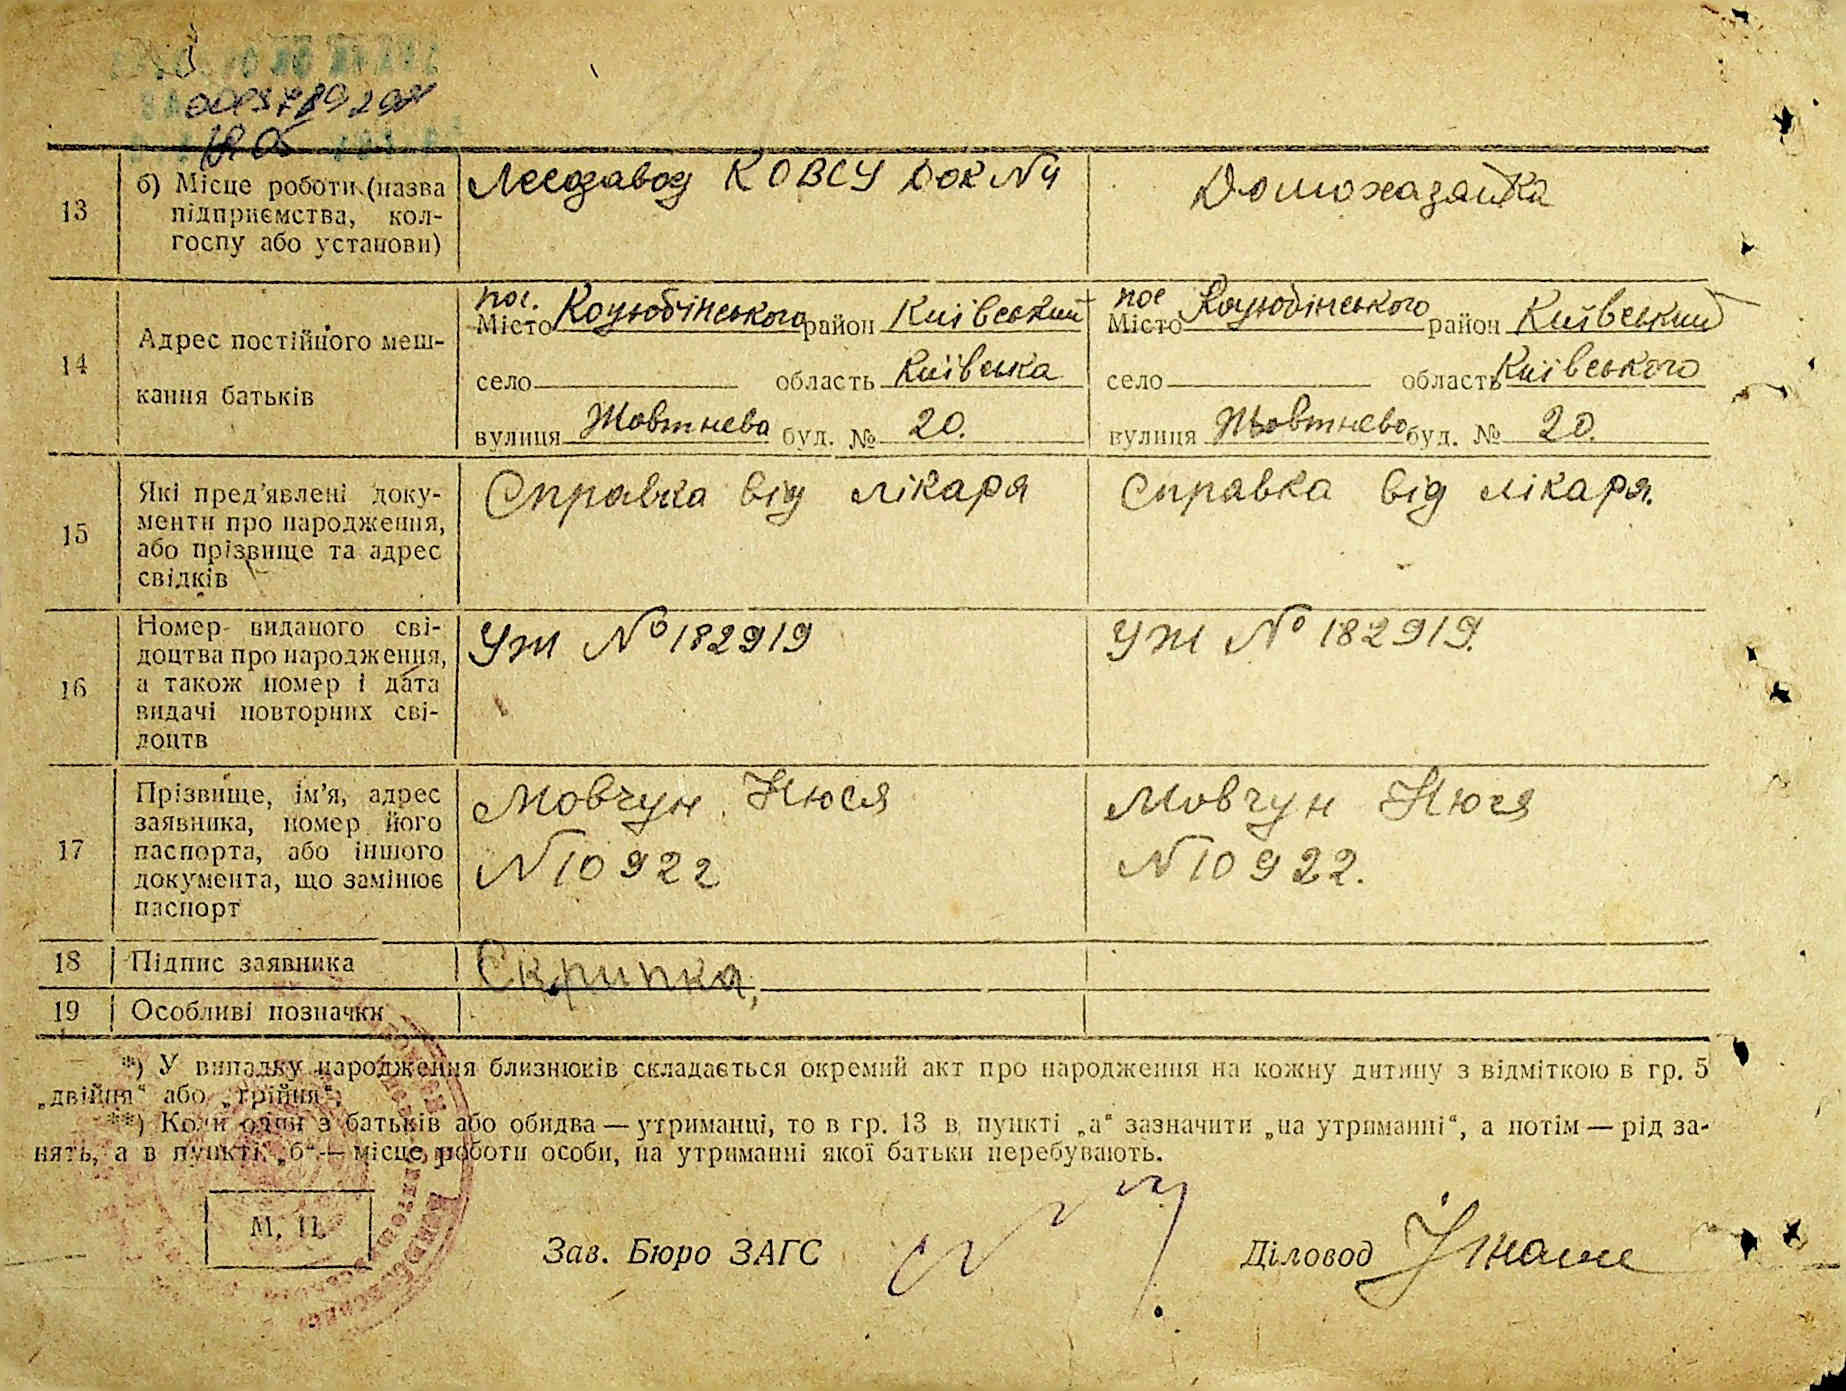 13
б) Місце роботи (назва
підприємства, кол-
госпу або установи)
Лесозавод КОВСУ ДОК №4
Домохазяйка
14
Адрес постійного меш-
кання батьків
пос. Місто Коцюбінського район Київський
село область Київська
вулиця Жовтнева буд. № 20.
пос Місто Коцюбінського район Київський
село область Київського
вулиця Жовтнева буд. № 20.
15
Які пред’явлені доку-
менти про народження,
або прізвище та адрес
свідків
Справка від лікаря
Справка від лікаря.
16
Номер виданого сві-
доцтва про народження,
а також номер і дата
видачі повторних сві-
доцтв
УЖ № 182919
УЖ № 182919.
17
Прізвище, ім’я, адрес
заявника, номер його
паспорта, або іншого
документа, що замінює
паспорт
Мовчун Нюся
N 10922
Мовчун Нюся
N 10922.
18
Підпис заявника
Скрипка,
19
Особливі позначки
*) У випадку народження близнюків складається окремий акт про народження на кожну дитину з відміткою в гр. 5
„двійня“ або „трійня“.
**) Коли один з батьків або обидва — утриманці, то в гр. 13 в пункті „а“ зазначити „на утриманні“, а потім — рід за-
нять, а в пункті „б“ — місце роботи особи, на утриманні якої батьки перебувають.
М. П.
Зав. Бюро ЗАГС
Діловод